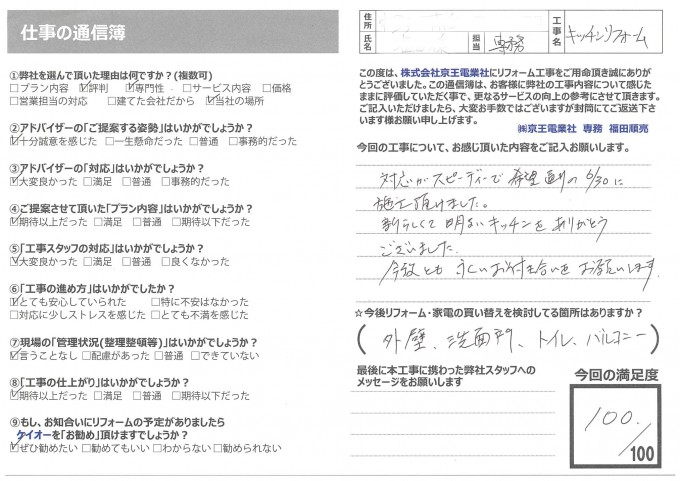 仕事の通信簿
①弊社を選んで頂いた理由は何ですか?(複数可)
□プラン内容 ☑評判 ☑専門性 □サービス内容 □価格
□営業担当の対応 □建てた会社だから ☑当社の場所
②アドバイザーの「ご提案する姿勢」はいかがでしょうか?
☑十分誠意を感じた □一生懸命だった □普通 □事務的だった
③アドバイザーの「対応」はいかがでしょうか?
☑大変良かった □満足 □普通 □事務的だった
④ご提案させて頂いた「プラン内容」はいかがでしょうか?
☑期待以上だった □満足 □普通 □期待以下だった
⑤「工事スタッフの対応」はいかがでしょうか?
☑大変良かった □満足 □普通 □良くなかった
⑥「工事の進め方」はいかがでしたか?
☑とても安心していられた □特に不安はなかった
□対応に少しストレスを感じた □とても不満を感じた
⑦現場の「管理状況(整理整頓等)」はいかがでしょうか?
☑言うことなし □配慮があった □普通 □できていない
⑧「工事の仕上がり」はいかがでしょうか?
☑期待以上だった □満足 □普通 □期待以下だった
⑨もし、お知合いにリフォームの予定がありましたら
ケイオーを「お勧め」頂けますでしょうか?
☑ぜひ勧めたい □勧めてもいい □わからない □勧められない
住所
氏名
担当 専務
工事名 キッチンリフォーム
この度は、株式会社京王電業社にリフォーム工事をご用命頂き誠にありが
とうございました。この通信簿は、お客様に弊社の工事内容について感じた
ままに評価していただく事で、更なるサービスの向上の参考にさせて頂きます。
ご記入いただけましたら、大変お手数ではございますが封筒にてご返送下さ
います様お願い申し上げます。
㈱京王電業社 専務 福田順亮
今回の工事について、お感じ頂いた内容をご記入お願いします。
対応がスピーディーで希望通りの6/30に
施工頂けました。
新らしくて明るいキッチンをありがとう
ございました。
今後とも お付き合いをお願いします。
☆今後リフォーム・家電の買い替えを検討してる箇所はありますか?
(外壁、洗面所、トイレ、バルコニー)
最後に本工事に携わった弊社スタッフへの
メッセージをお願いします
今回の満足度
100.
/100